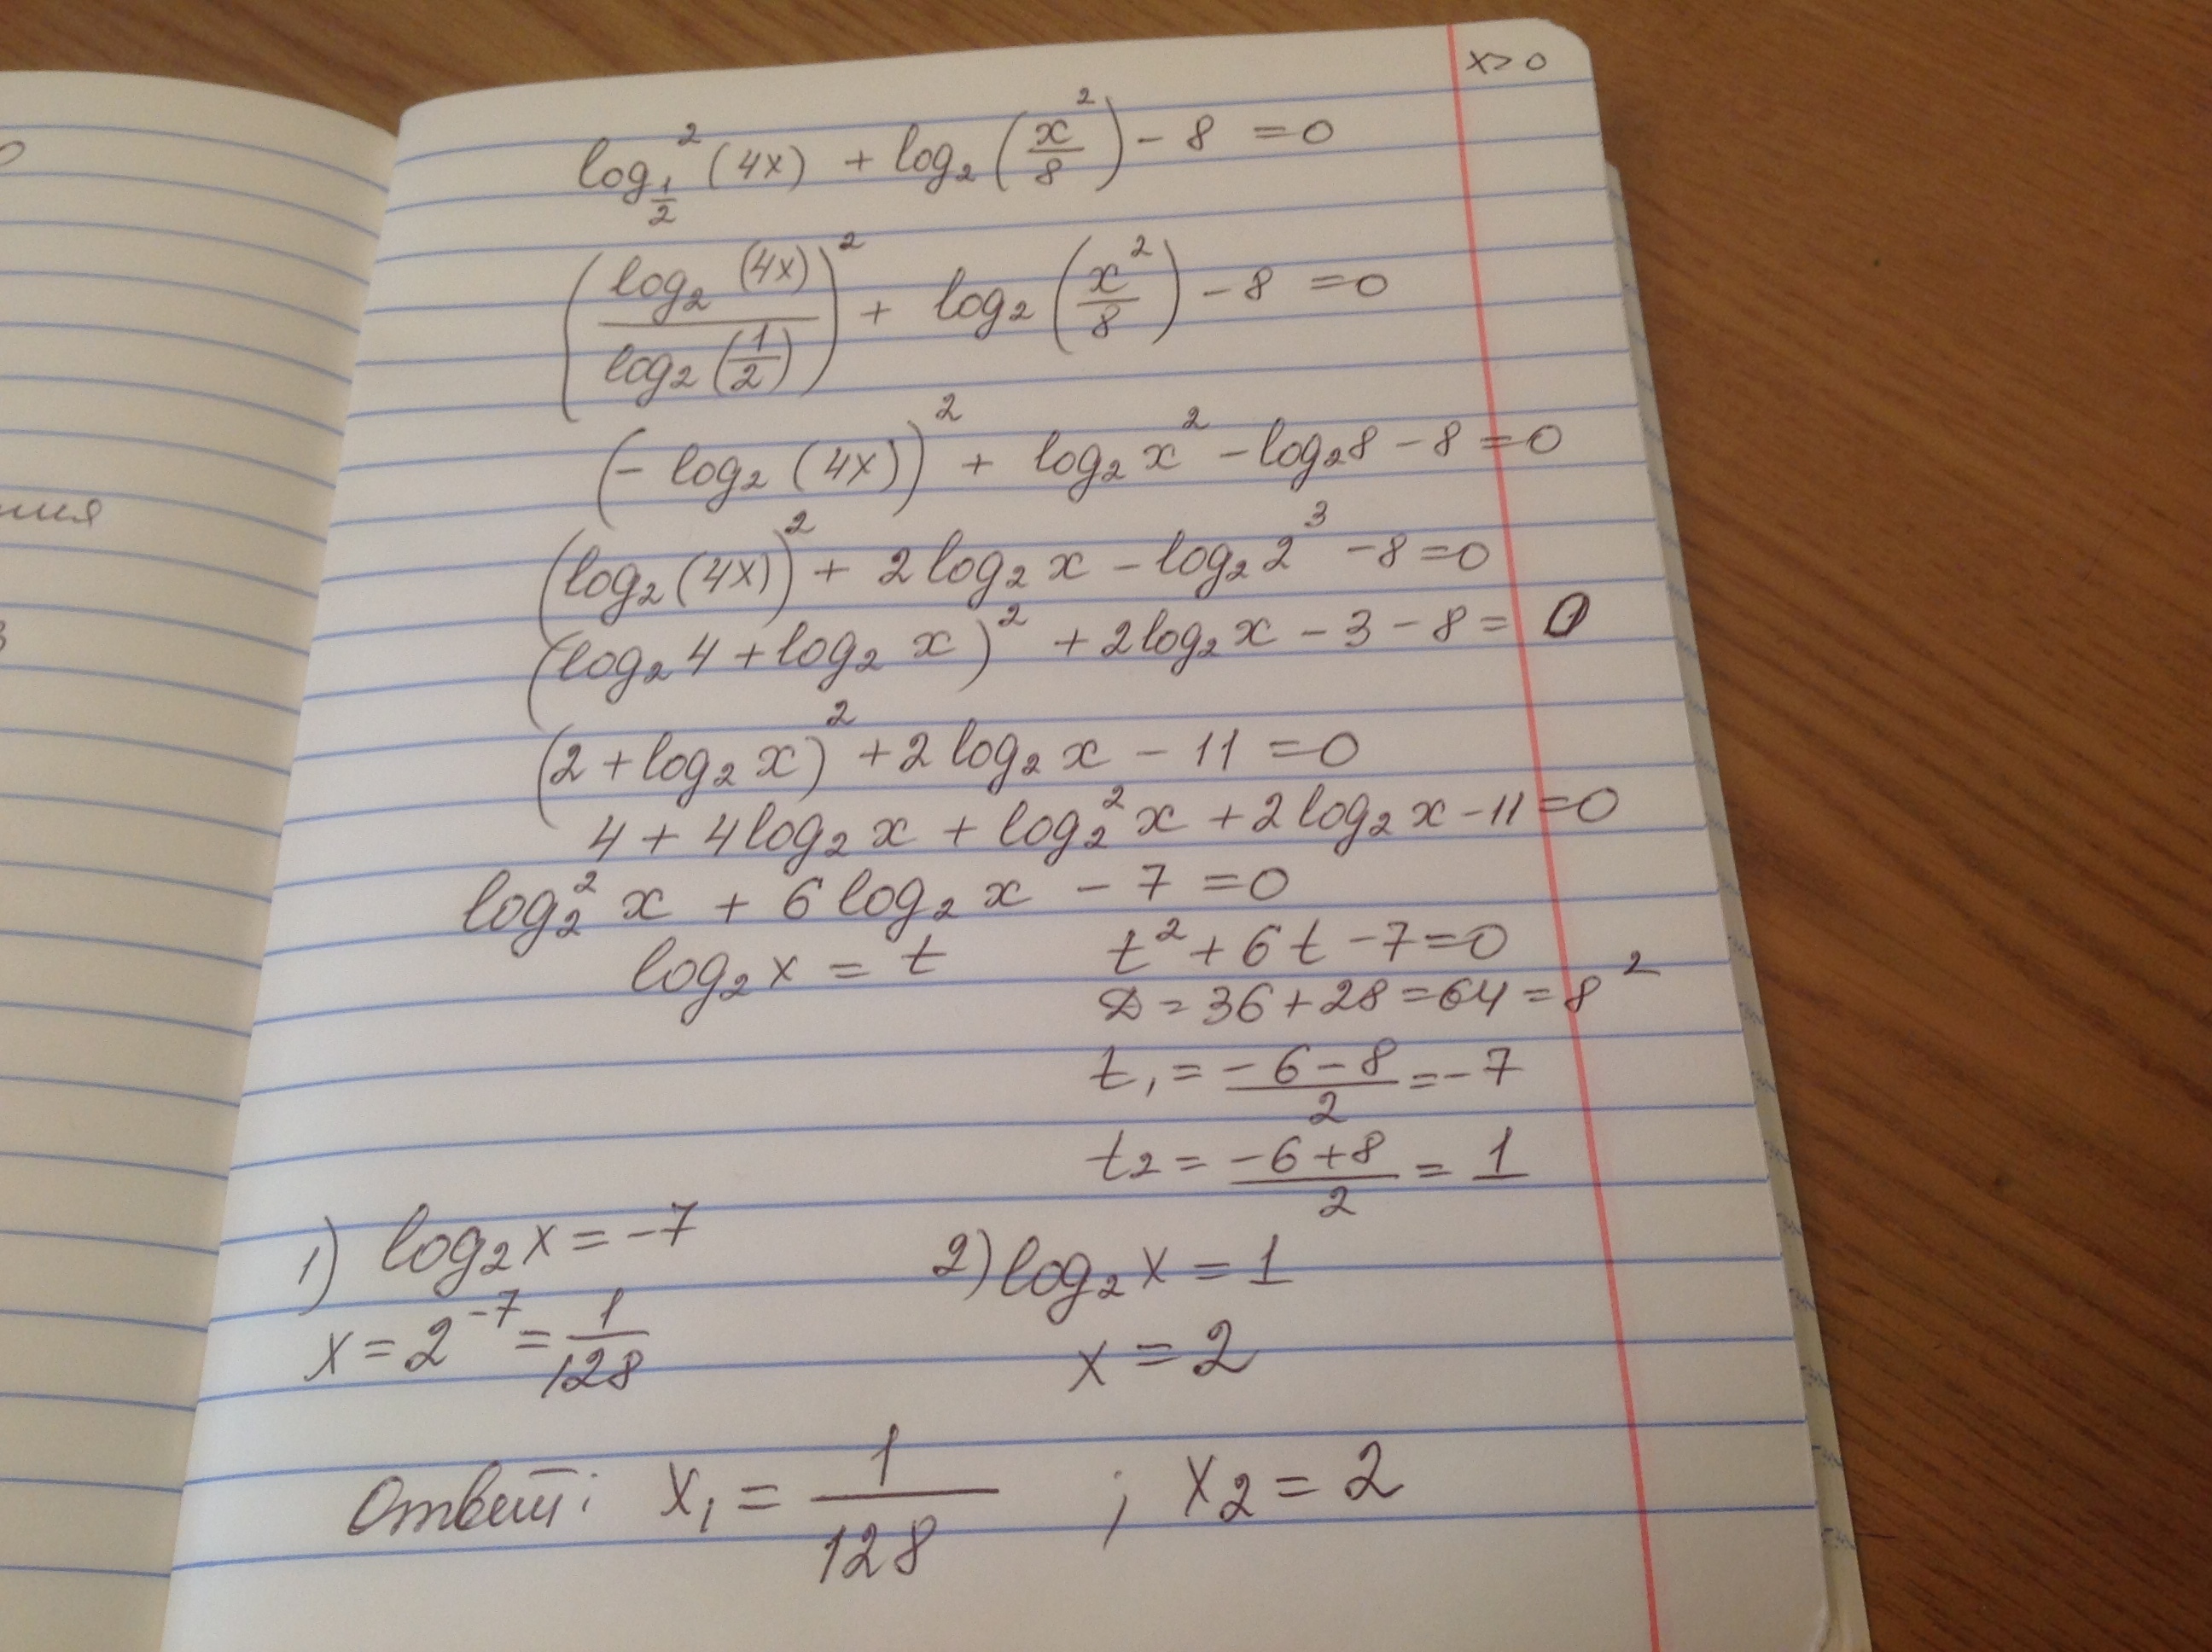 x > 0
log²_{1/2} (4x) + log₂ (x²/8) - 8 = 0
(log₂ (4x) / log₂ (1/2))² + log₂ (x²/8) - 8 = 0
(- log₂ (4x))² + log₂ x² - log₂ 8 - 8 = 0
(log₂ (4x))² + 2 log₂ x - log₂ 2³ - 8 = 0
(log₂ 4 + log₂ x)² + 2 log₂ x - 3 - 8 = 0
(2 + log₂ x)² + 2 log₂ x - 11 = 0
4 + 4 log₂ x + log₂² x + 2 log₂ x - 11 = 0
log₂² x + 6 log₂ x - 7 = 0
log₂ x = t    t² + 6t - 7 = 0
D = 36 + 28 = 64 = 8²
t₁ = (-6 - 8)/2 = -7
t₂ = (-6 + 8)/2 = 1
1) log₂ x = -7    2) log₂ x = 1
x = 2⁻⁷ = 1/128    x = 2
Ответ: x₁ = 1/128 ; x₂ = 2